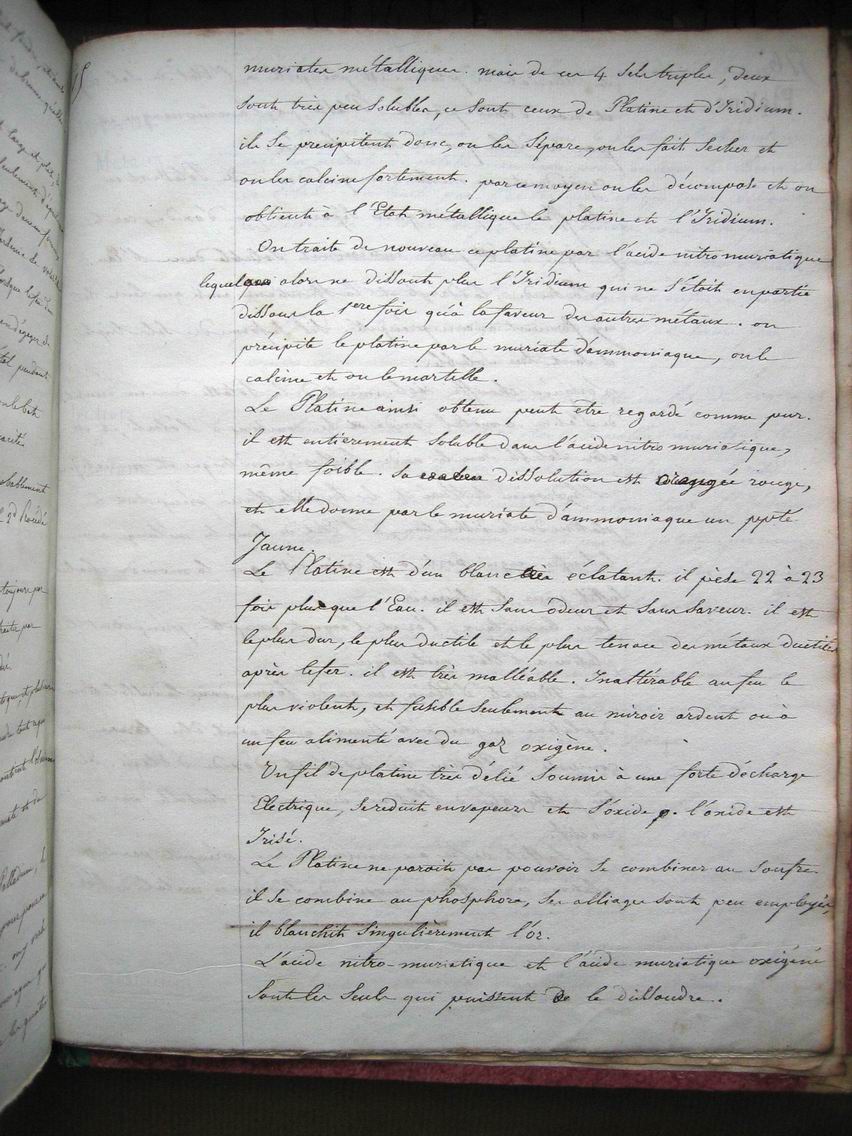 muriates métalliques. mais de ces 4 Sels triples, deux
Sont très peu Solubles, ce Sont ceux de Platine et d'Iridium.
ils Se précipitent donc, on les Sépare, on les fait Secher et
on les calcine fortement. par ce moyen on les décompose et on
obtient à l'Etat métallique le platine et l'Iridium.
On traite de nouveau ce platine par l'acide nitro muriatique
lequel alors ne dissout plus l'Iridium qui ne s'étoit en partie
dissous la 1ere fois qu'à la faveur des autres métaux. on
précipite le platine par le muriate d'ammoniaque, on le
calcine et on le martelle.
Le Platine ainsi obtenu peut etre regardé comme pur.
il est entierement Soluble dans l'acide nitro muriatique,
même foible. Sa dissolution est orangée rouge,
et elle donne par le muriate d'ammoniaque un ppté
Jaune.
Le Platine est d'un blanc très éclatant. il pèse 22 à 23
fois plus que l'Eau. il est Sans odeur et Sans Saveur. il est
le plus dur, le plus ductile et le plus tenace des métaux ductiles
après le fer. il est très malléable. Inaltérable au feu le
plus violent, et fusible Seulement au miroir ardent ou à
un feu alimenté avec du gaz oxigène.
Un fil de platine très délié Soumis à une forte décharge
Electrique, Se reduit en vapeurs et S'oxide. l'oxide est
Irisé.
Le Platine ne paroit pas pouvoir Se combiner au Soufre.
il Se combine au phosphore, Ses alliages Sont peu employés,
il blanchit Singulièrement l'or.
L'acide nitro-muriatique et l'acide muriatique oxigéné
Sont les Seuls qui puissent le dissoudre.